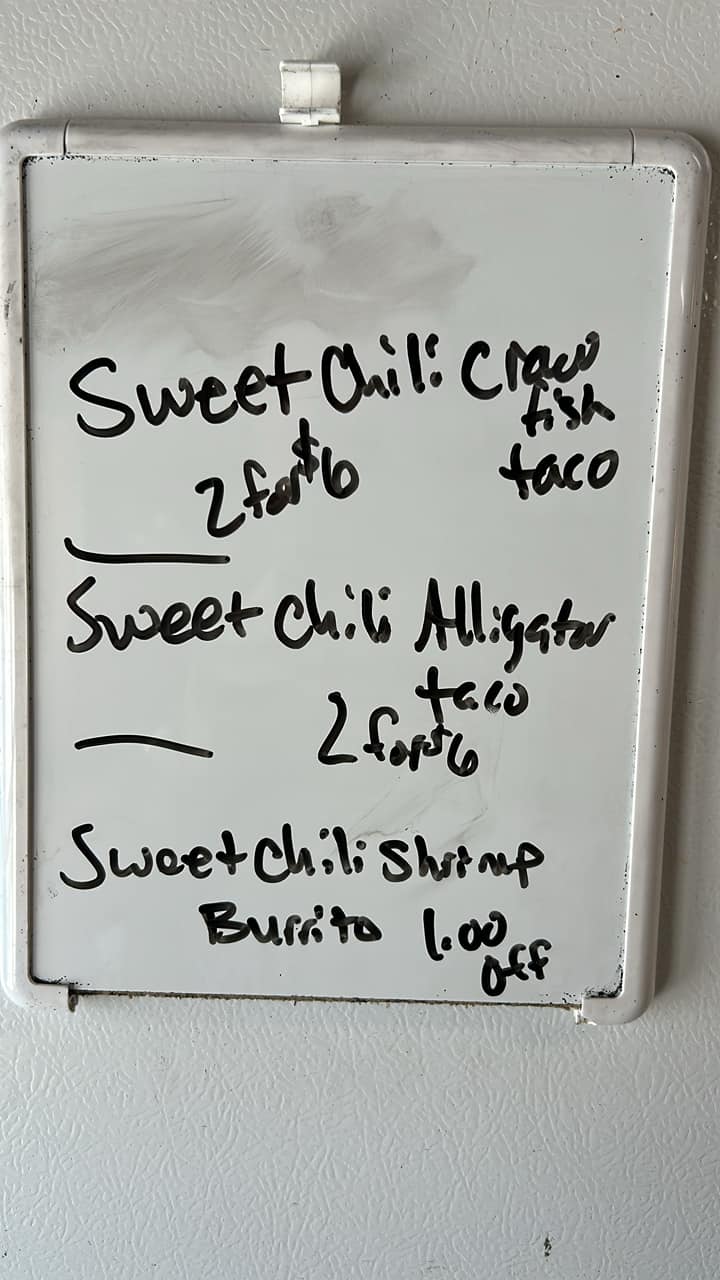 Sweet Chili Craw
fish
2 for $6 taco
Sweet Chili Alligator
taco
2 for $6
Sweet Chili Shrimp
Burrito 1.00
off